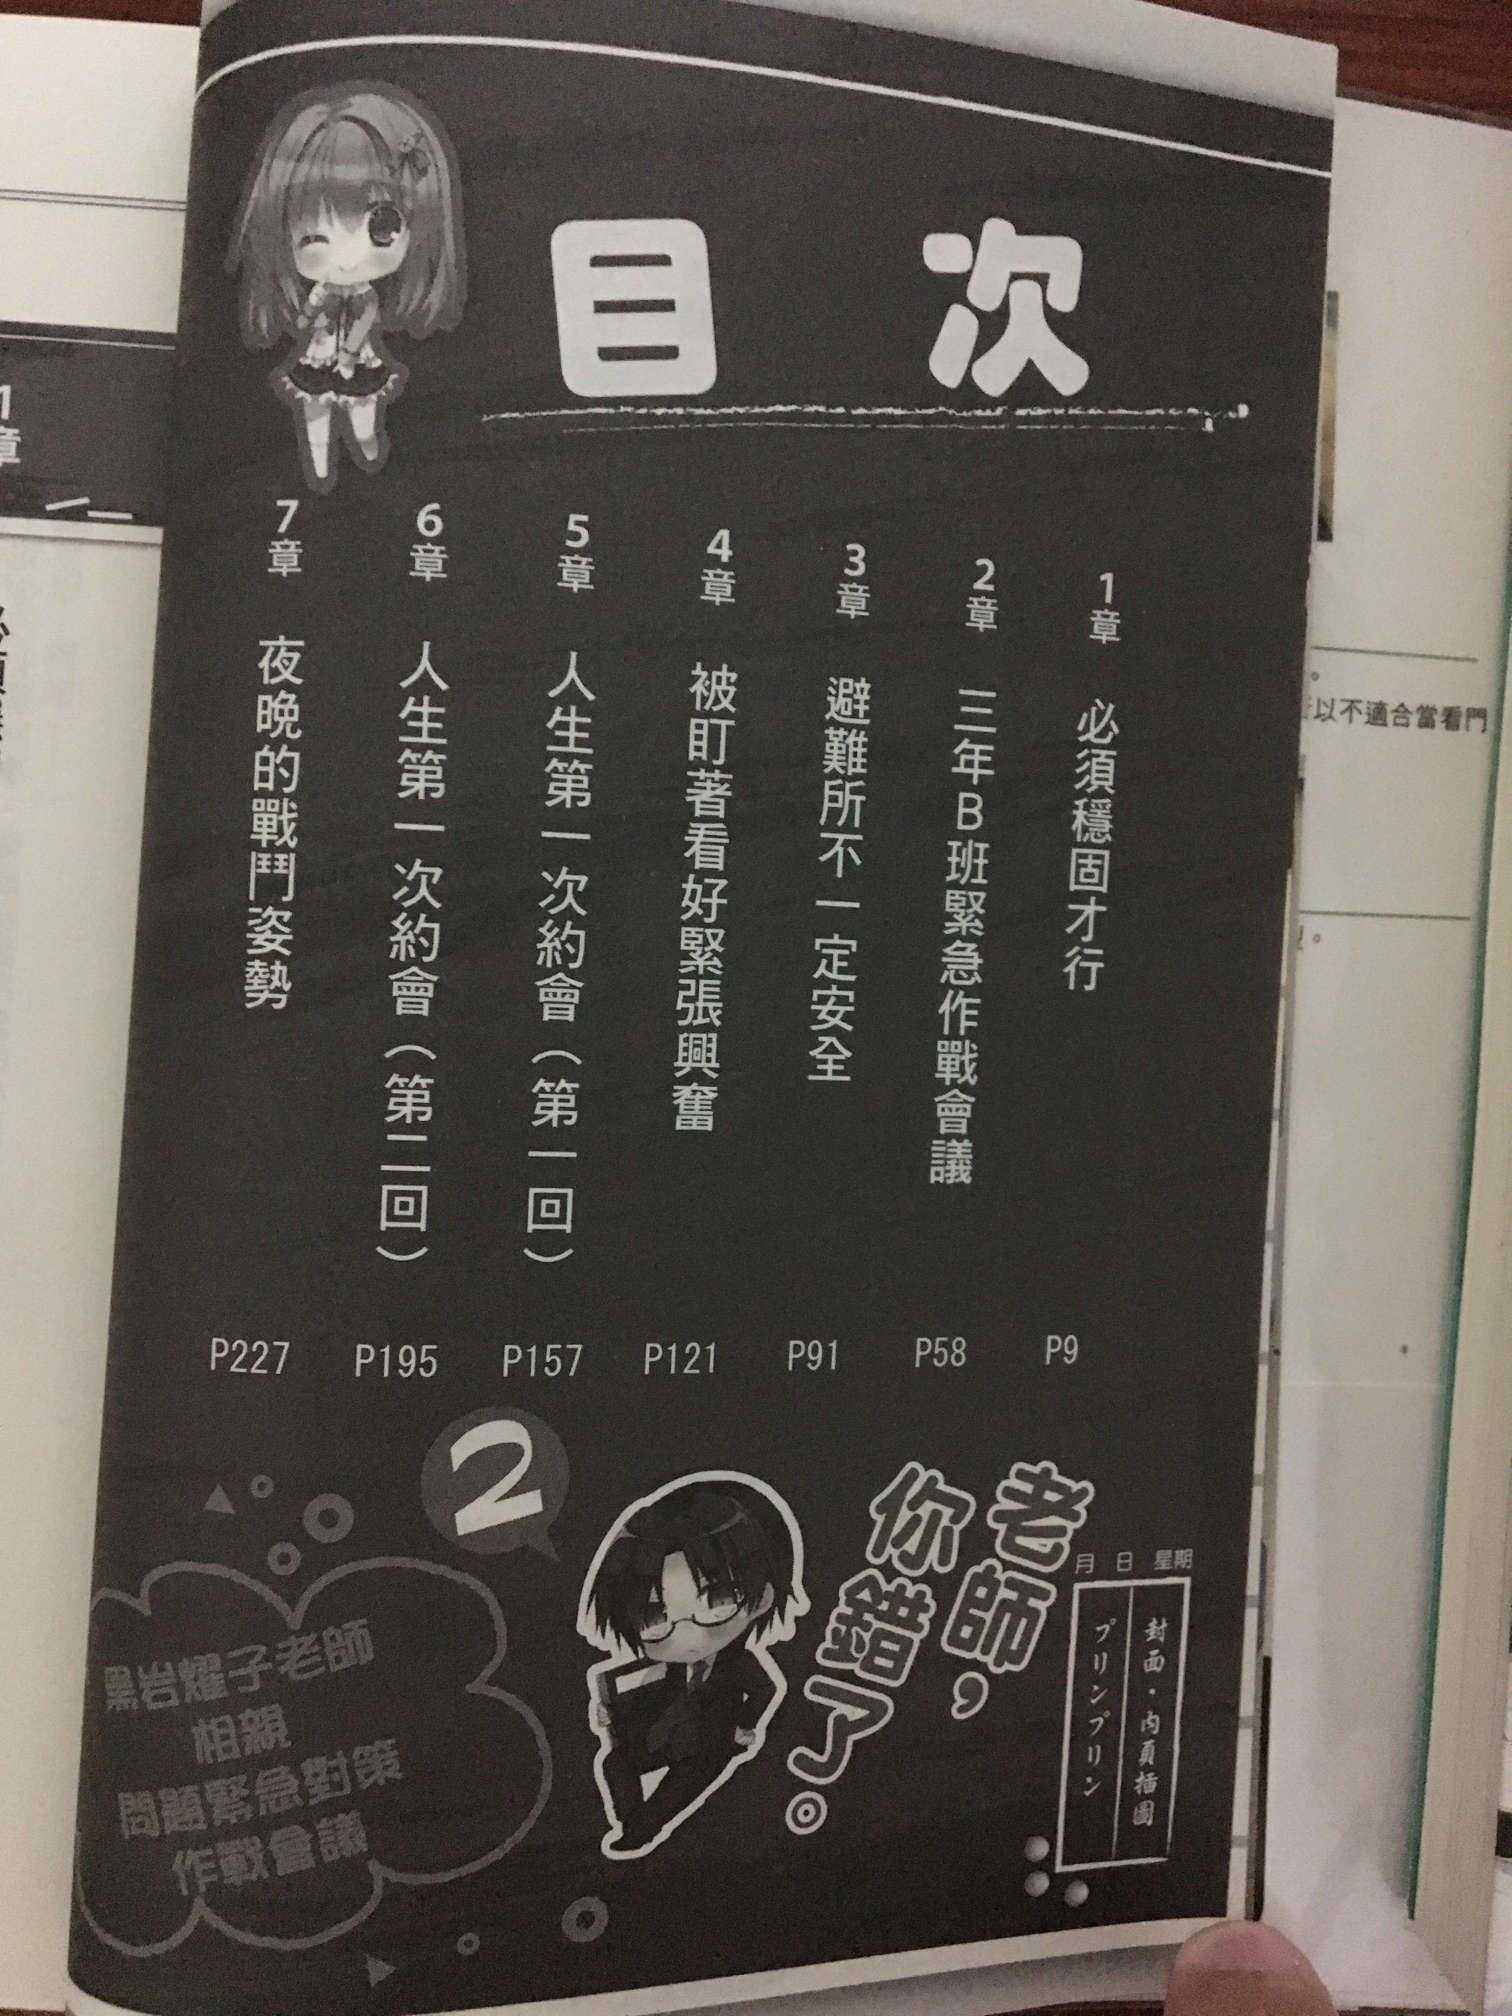 目次
1章 必須穩固才行 P9
2章 三年B班緊急作戰會議 P58
3章 避難所不一定安全 P91
4章 被盯著看好緊張興奮 P121
5章 人生第一次約會（第一回） P157
6章 人生第一次約會（第二回） P195
7章 夜晚的戰鬥姿勢 P227
月 日 星期
封面・內頁插圖
プリンプリン
老師，
你錯了。
2
黑岩燿子老師
相親
問題緊急對策
作戰會議
1章
以不適合當看門